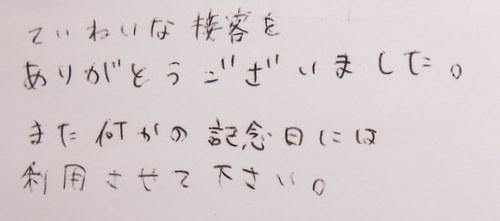 ていねいな接客を
ありがとうございました。
また何かの記念日には
利用させて下さい。